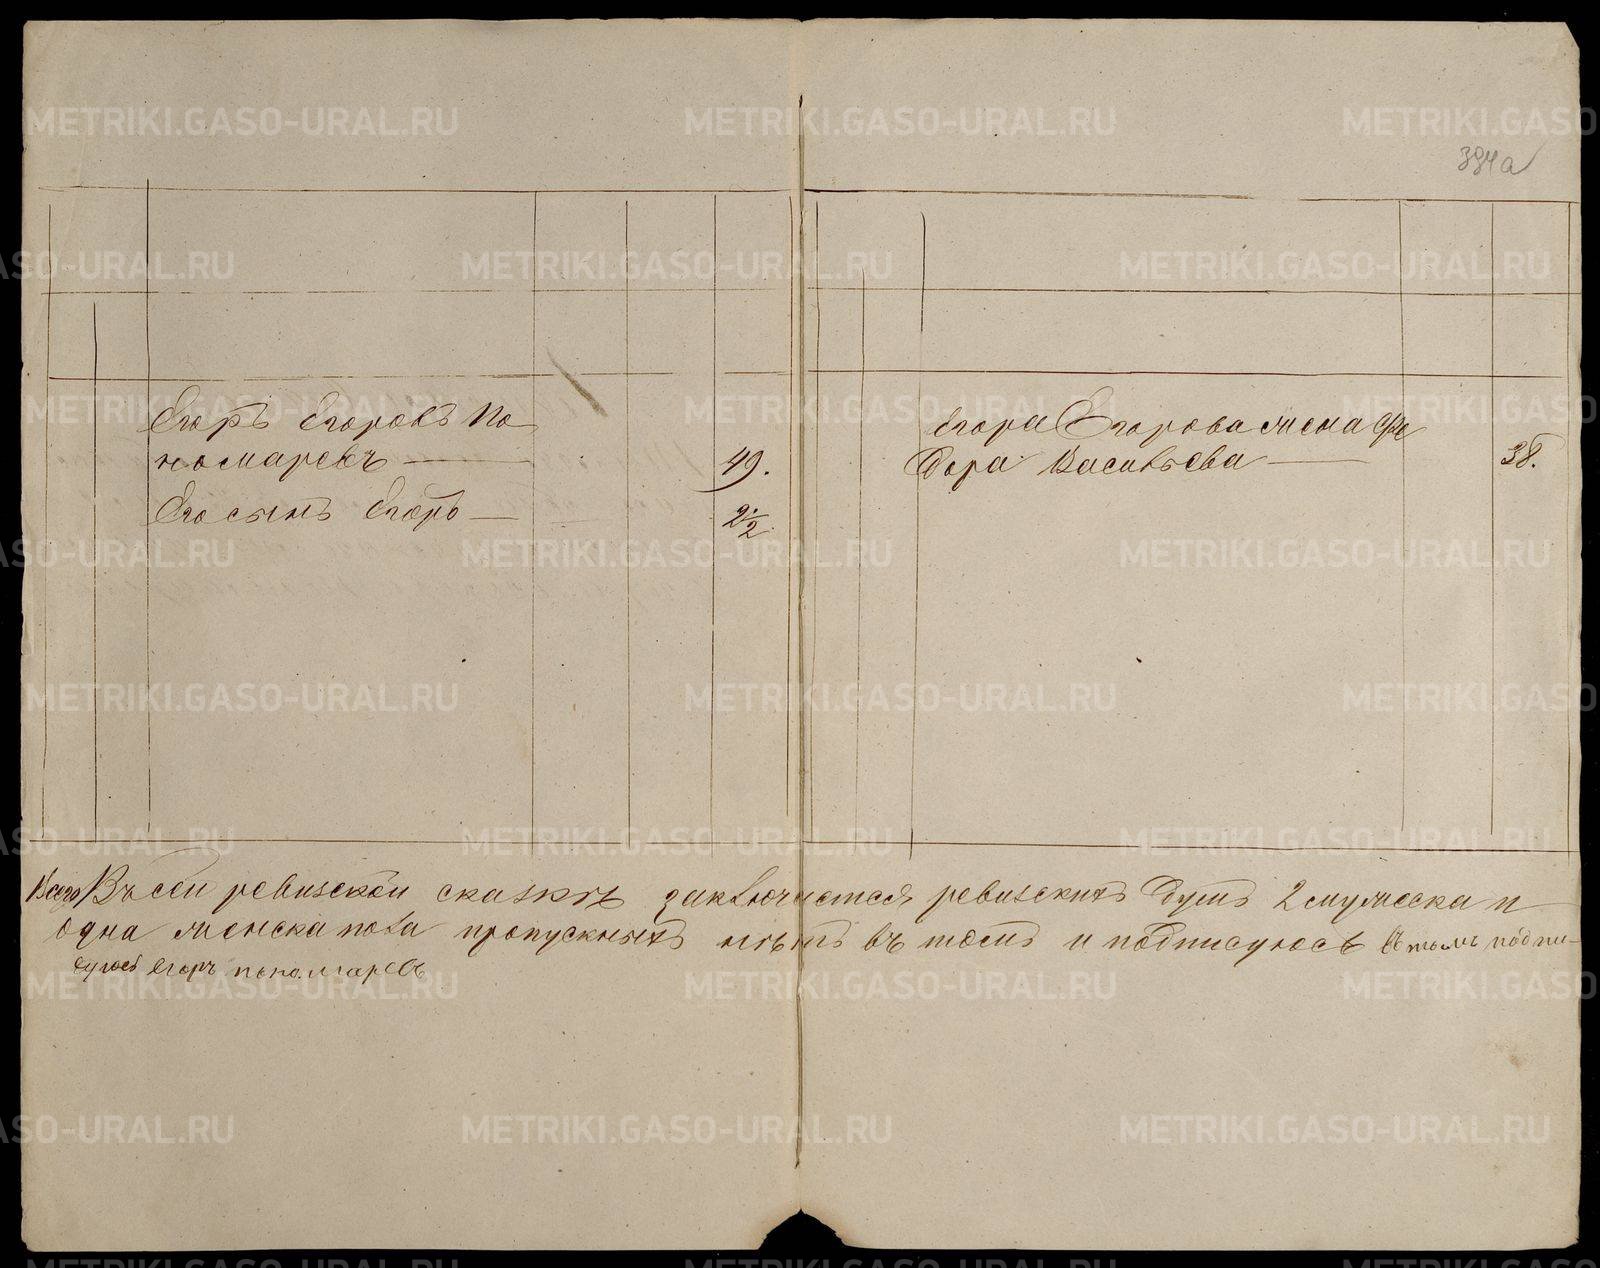 394а
Егоръ Егоровъ По
номаревъ — 49.
Его сынъ Егоръ — 2 1/2
Егора Егорова жена Фе
дора Васильева — 38.
Всего Въ сей ревизской сказкѣ заключается ревизскихъ душъ 2 мужеска и
одна женска пола пропускныхъ нѣтъ въ томъ и подписуюсь Въ томъ подпи-
суюсь Егоръ пономаревъ
METRIKI.GASO-URAL.RU